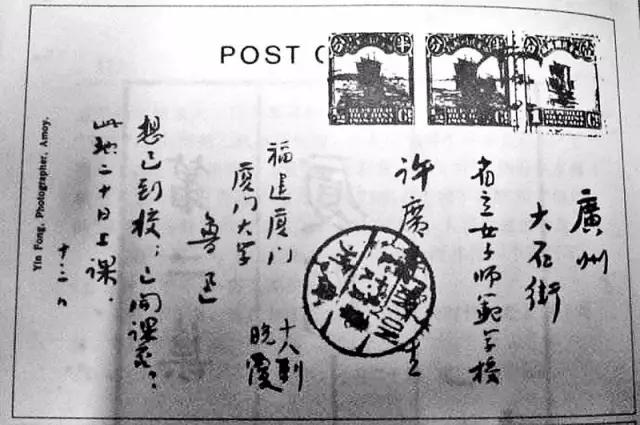 POST C
廣州
大石街
省立女子師範学校
许廣
生
CANTON
福建厦门
厦门大学
魯迅
十八到
晚覆
想已到校；已開課否？
此地二十日上課．
十三日
Yin Fong, Photographer, Amoy.